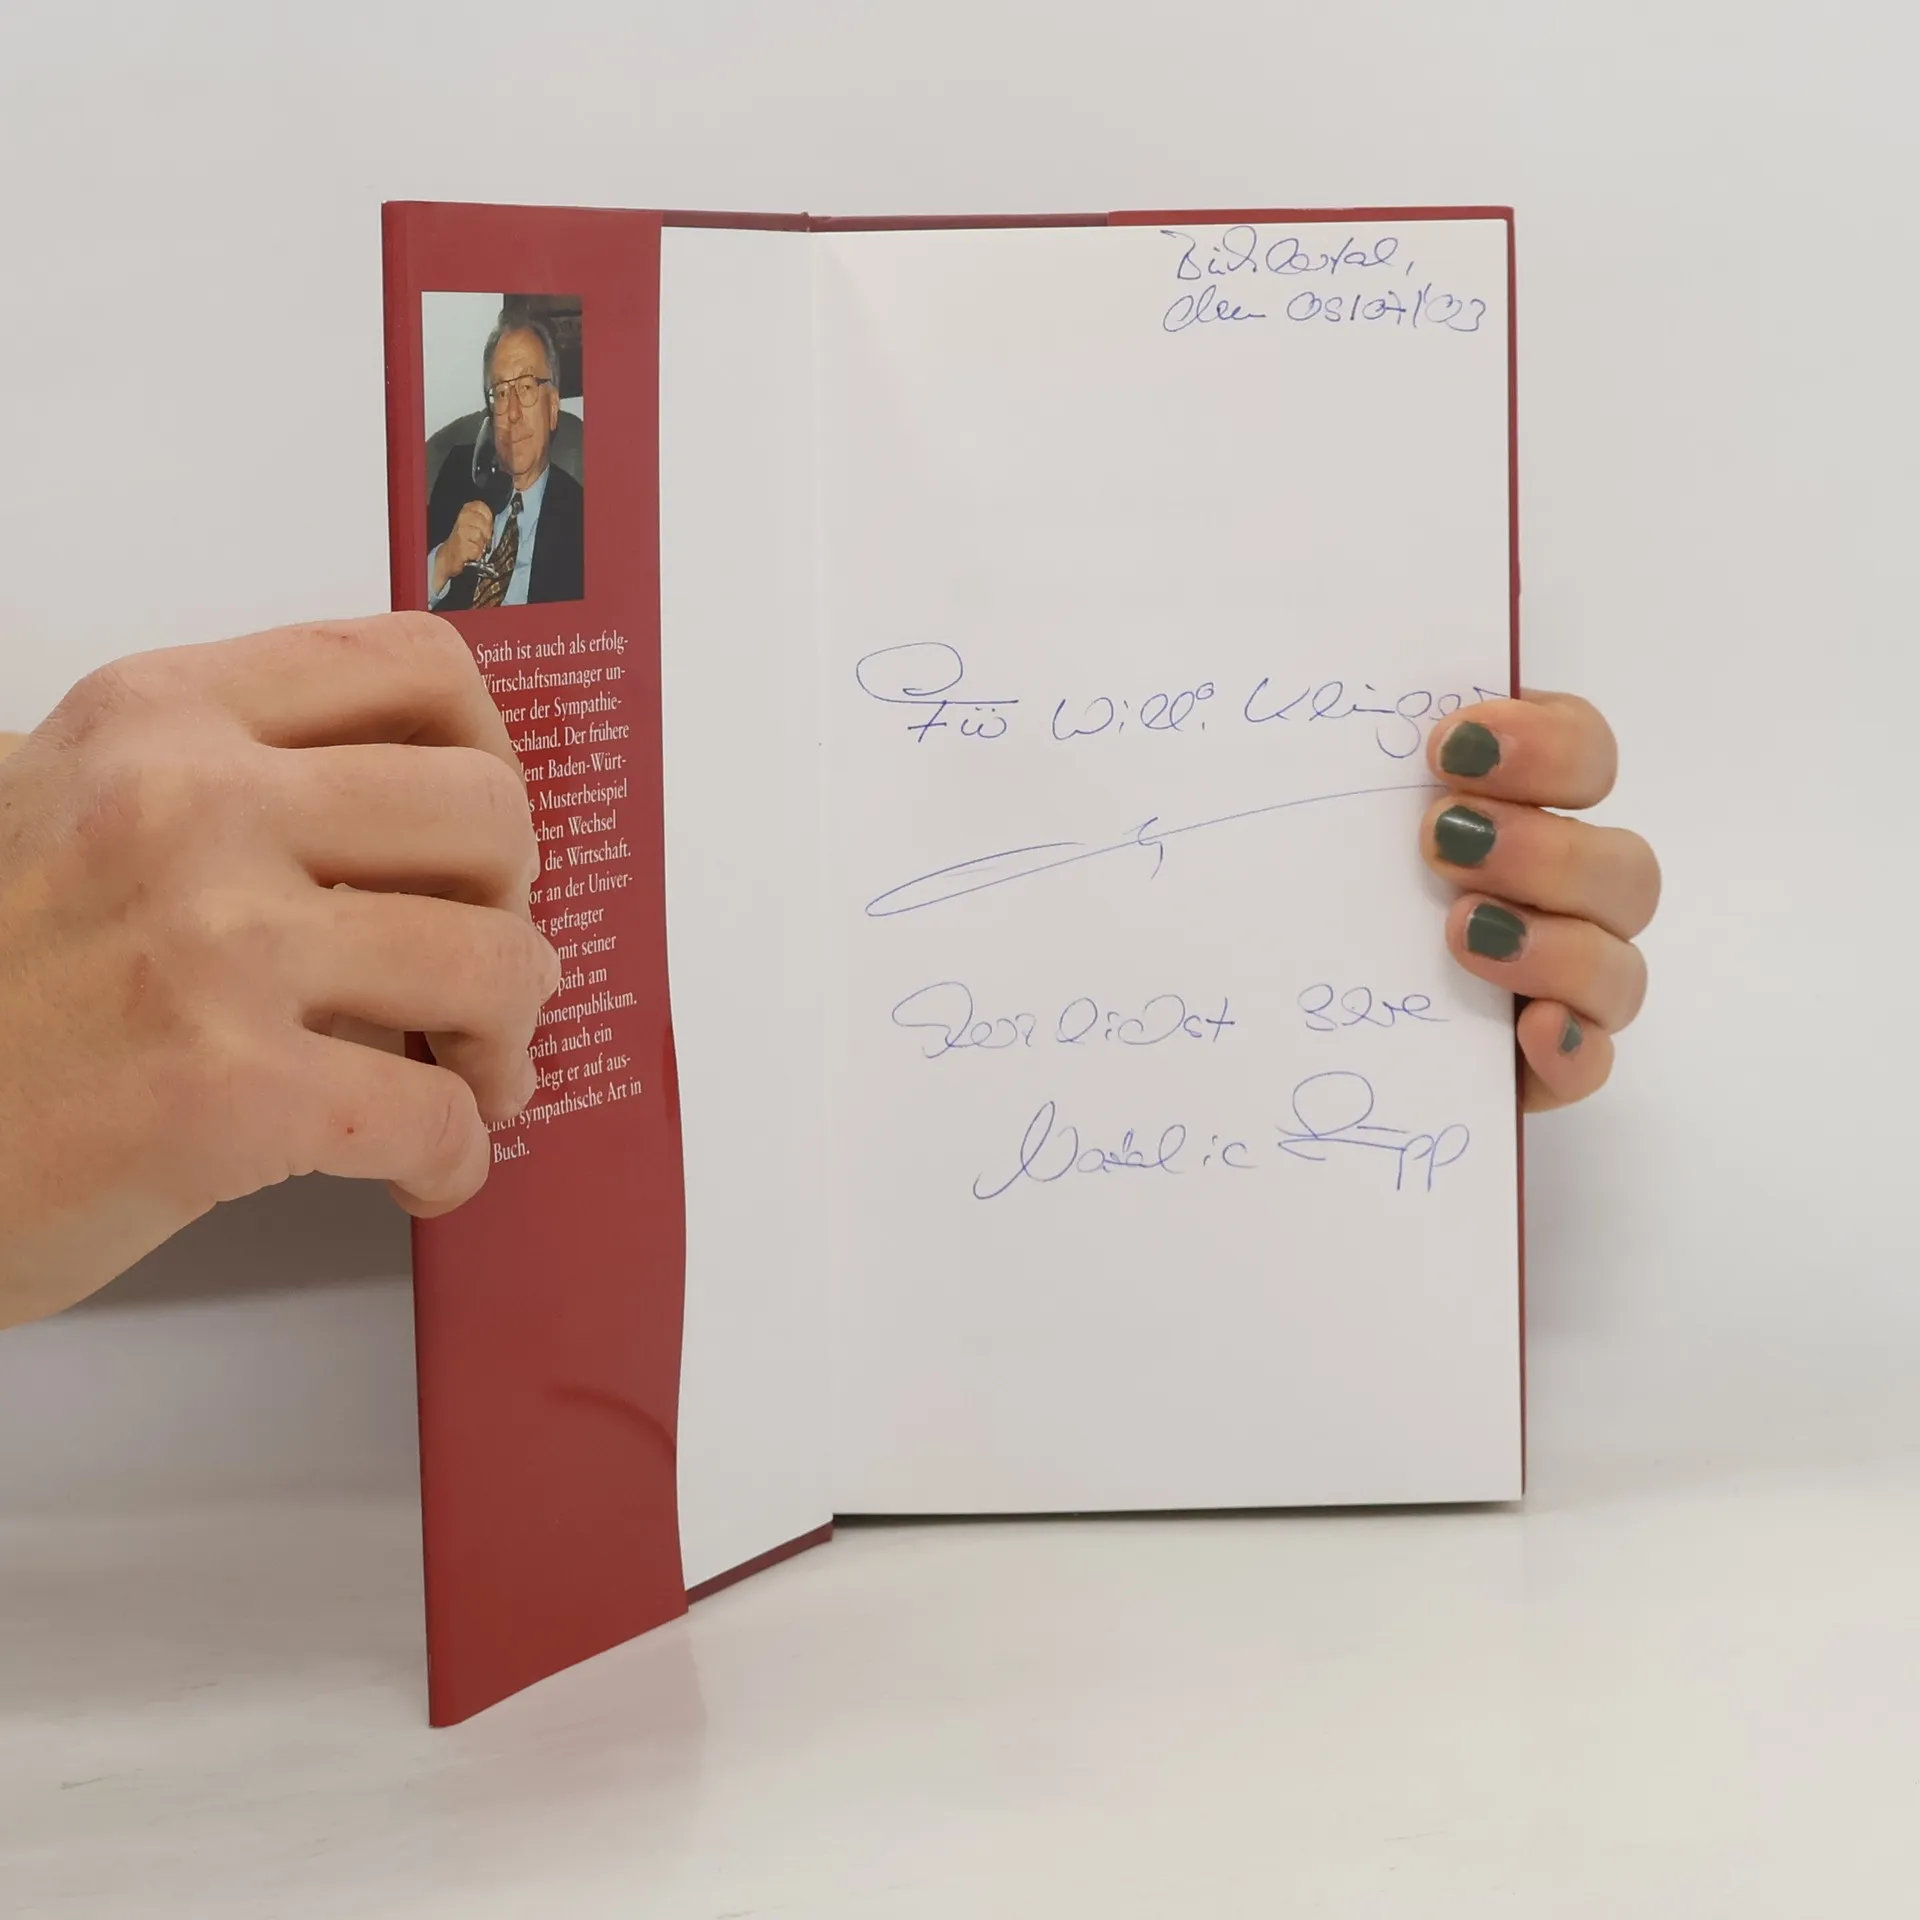 Späth ist auch als erfolg-
Wirtschaftsmanager un-
iner der Sympathie-
schland. Der frühere
ent Baden-Würt-
s Musterbeispiel
chen Wechsel
die Wirtschaft.
or an der Univer-
ist gefragter
mit seiner
päth am
lionenpublikum.
päth auch ein
elegt er auf aus-
sympathische Art in
Buch.
Bühlertal,
den 05/07/03
Für Willi Klinger
Herzlichst Ihre
Natalie